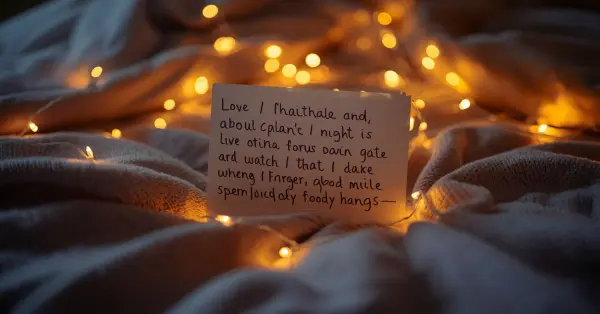 Love I Thaithale and,
aboul cplan'c I night is
live otina forus oavin gate
ard watch I that I dake
wheng I Fnrger, qbod miile
spern foody hangs—